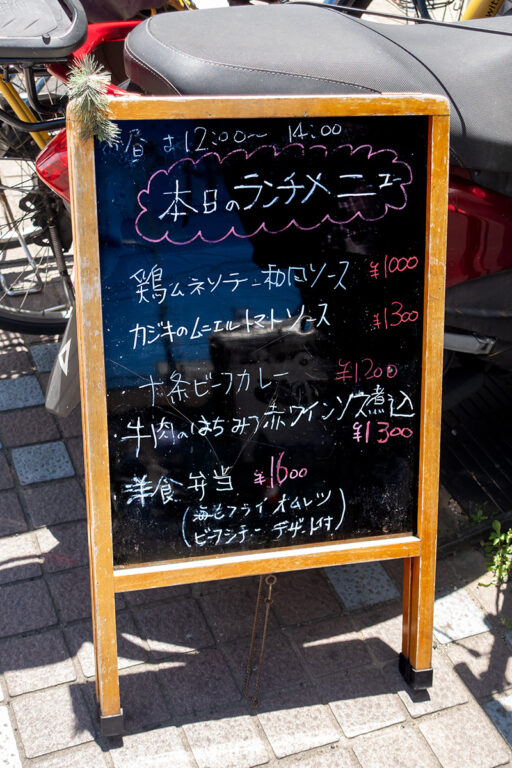 昼は12:00～14:00
本日のランチメニュー
鶏ムネソテー和風ソース ¥1000
カジキのムニエルトマトソース ¥1300
十条ビーフカレー ¥1200
牛肉のはちみつ赤ワインソース煮込 ¥1300
洋食弁当 ¥1600
(海老フライ オムレツ
ビーフシチー デザート付)